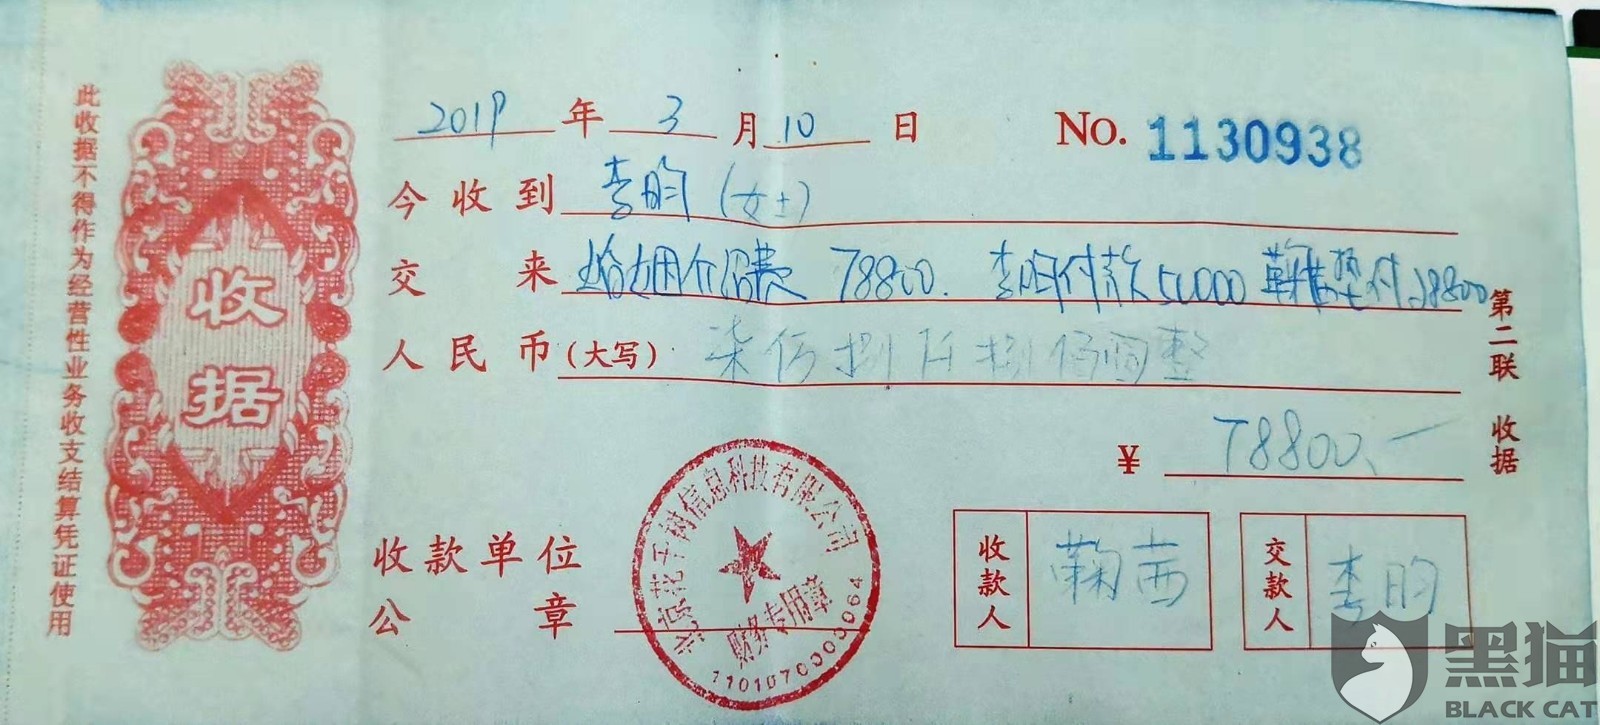 此收据不得作为经营性业务收支结算凭证使用
收据
2019年3月10日 No. 1130938
今收到 李昀(女士)
交来 婚姻介绍费 78800. 李昀付款50000 鞠茜垫付28800
人民币(大写) 柒仟捌仟捌佰圆整
¥ 78800.一
第二联 收据
收款单位
公章
北京花千树信息科技有限公司
财务专用章
1101070003064
收款人 鞠茜
交款人 李昀
黑猫
BLACK CAT